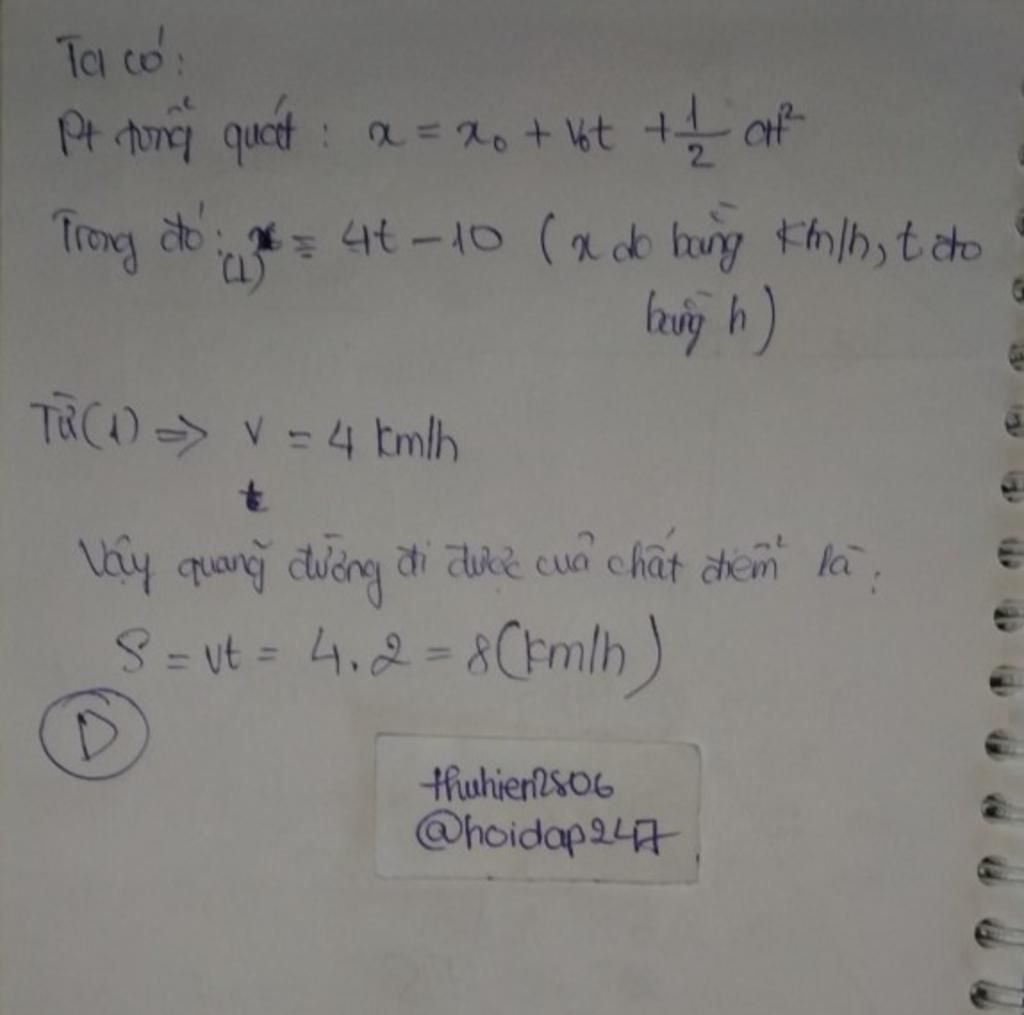 Ta có:
Pt tổng quát: x = x₀ + v₀t + 1/2 at²
Trong đó: (1) x = 4t - 10 (x đo bằng km/h, t đo
bằng h)
Từ (1) => v = 4 km/h
t
Vậy quãng đường đi được của chất điểm là:
S = vt = 4.2 = 8 (km/h)
D
thuhien2806
@hoidap247